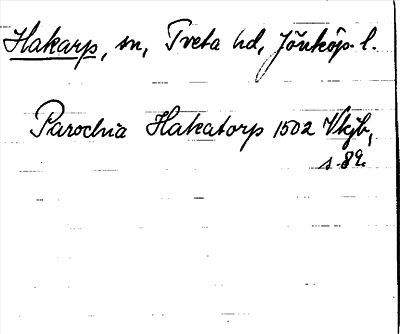 Hakarp, sn, Tveta hd, Jönköp. l.
Parochia Hakatorp 1502 Vkjb,
s. 89.